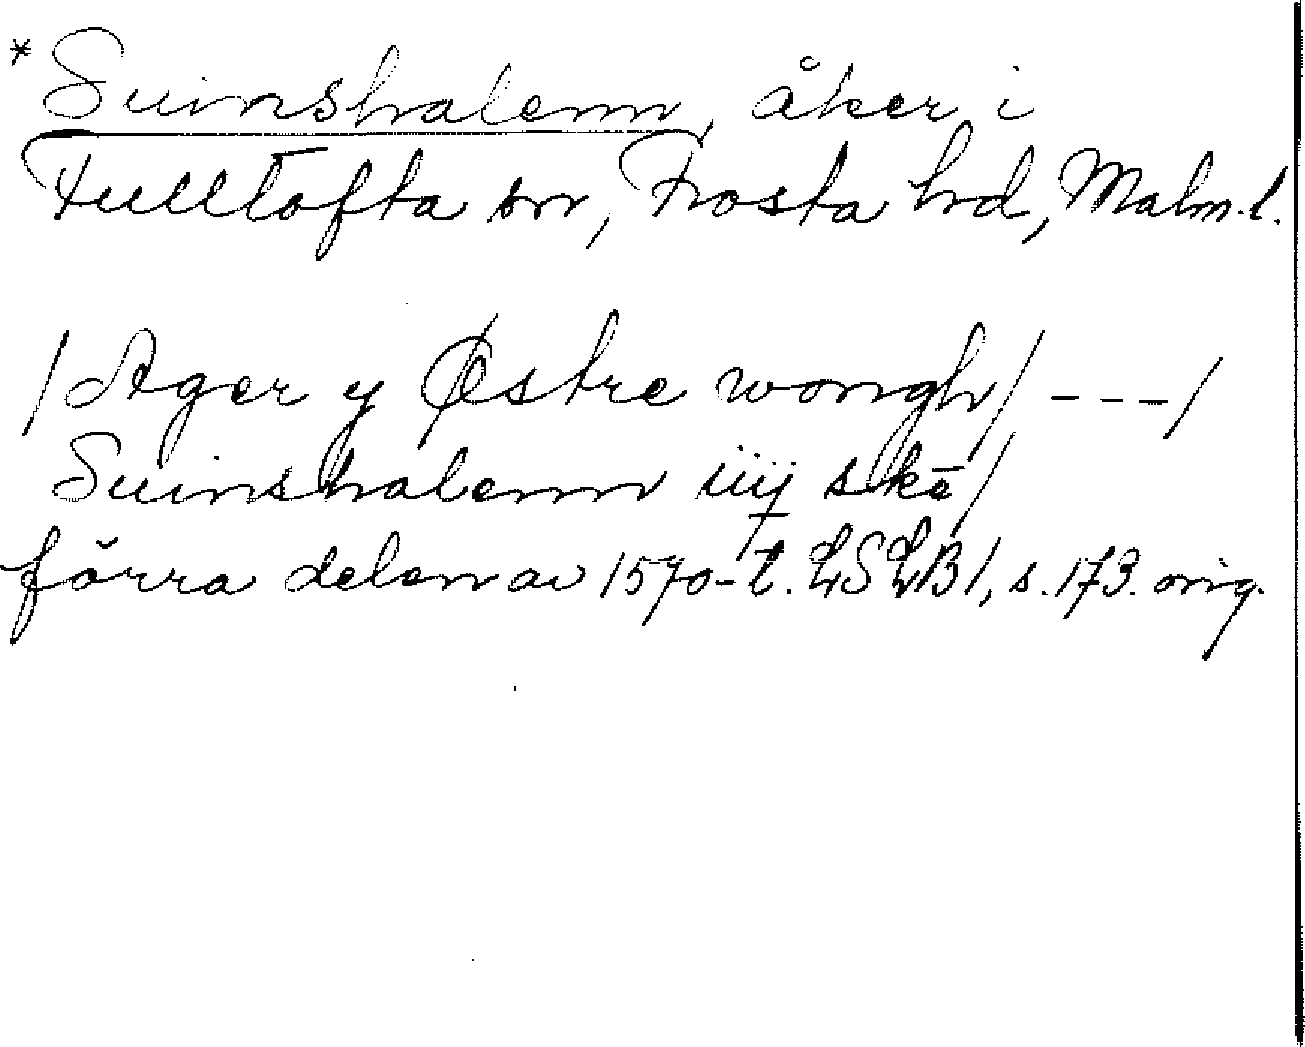 *Suinshalenn, åker i
Fulltofta sn, Frosta hd, Malm.l.
/Ager y Østre wongh/ ---/
Suinshalenn iiij skē/
förra delen av 1570-t. LSLB1, s. 173. orig.